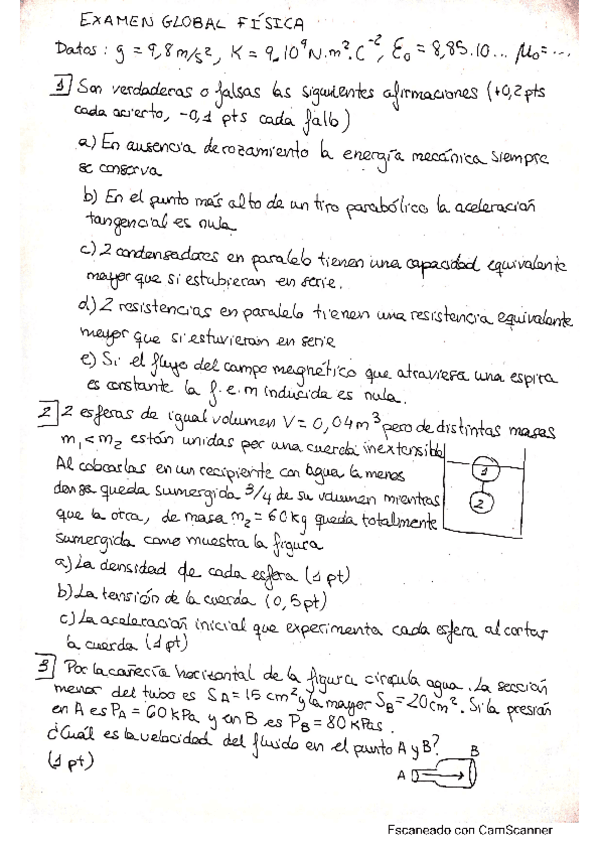 EXAMEN GLOBAL FÍSICA
Datos: g = 9,8 m/s², K = 9.10⁹ N.m².C⁻², Ɛ₀ = 8,85.10... μ₀=...
1 Son verdaderas o falsas las siguientes afirmaciones (+0,2 pts
cada acierto, -0,1 pts cada fallo)
a) En ausencia de rozamiento la energía mecánica siempre
se conserva
b) En el punto más alto de un tiro parabólico la aceleración
tangencial es nula
c) 2 condensadores en paralelo tienen una capacidad equivalente
mayor que si estubieran en serie.
d) 2 resistencias en paralelo tienen una resistencia equivalente
mayor que si estuvieran en serie
e) Si el flujo del campo magnético que atraviesa una espira
es constante la f.e.m inducida es nula.
2 2 esferas de igual volumen V = 0,04 m³ pero de distintas masas
m₁ < m₂ están unidas por una cuerda inextensible
Al colocarlas en un recipiente con agua la menos
densa queda sumergida 3/4 de su volumen mientras
que la otra, de masa m₂ = 60 kg queda totalmente
sumergida como muestra la figura
1
2
a) La densidad de cada esfera (1 pt)
b) La tensión de la cuerda (0,5 pt)
c) La aceleración inicial que experimenta cada esfera al cortar
la cuerda (1 pt)
3 Por la cañería horizontal de la figura circula agua. La sección
menor del tubo es S_A = 15 cm² y la mayor S_B = 20 cm². Si la presión
en A es P_A = 60 kPa y en B es P_B = 80 kPas.
¿Cuál es la velocidad del fluido en el punto A y B?
(1 pt)
A
B
Escaneado con CamScanner